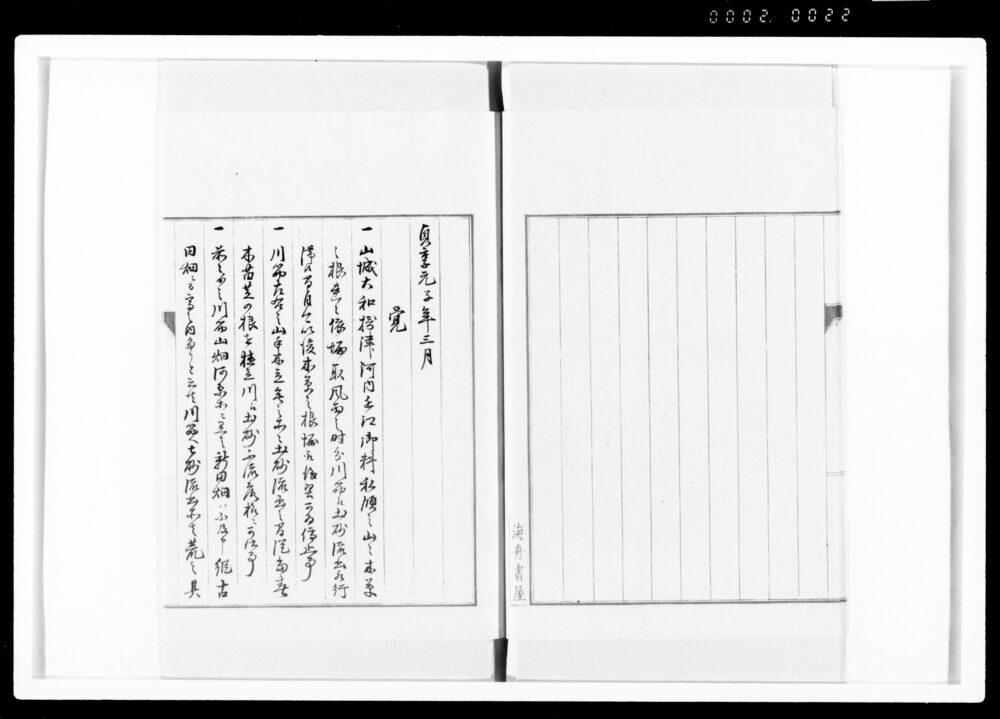 0002. 0022
海舟書屋
貞享元子年三月
覚
一山城大和摂津河内近江御料私領之山々木草
之根迄依掘取風雨之時分川筋江土砂流出水行
滞候間自今以後木草之根掘候儀堅可為停止事
一川筋左右之山手木立無之所々土砂流出候間従当春
木苗芝の根を植立川江土砂不流落様ニ可仕事
一前々之川筋山畑河原等ニ有之新田畑ハ不及申縦古
田畑高之内たりと云共川筋土砂流出所者荒之其